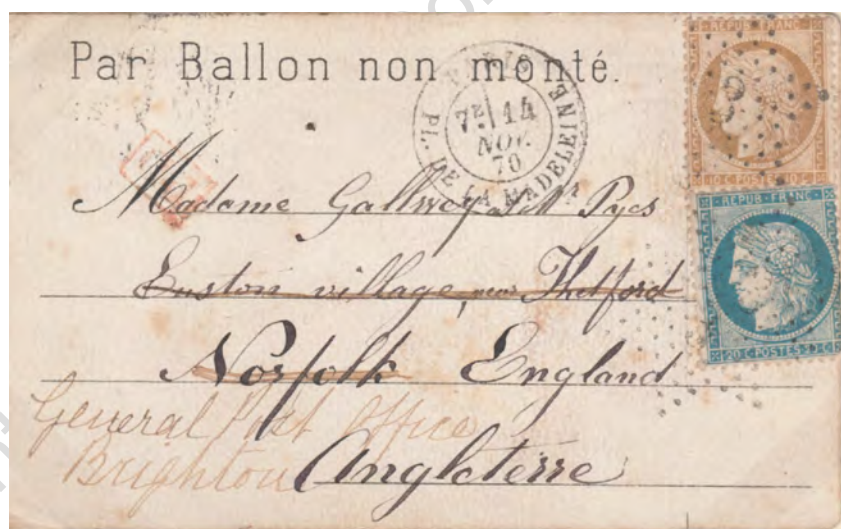 Par Ballon non monté.
PARIS
PL. DE LA MADELEINE
7E 14
NOV.
70
REPUB·FRANC·
10 C·POSTES·10 C·
REPUB·FRANC·
20 C·POSTES·20 C·
Madame Gallwey
Euston village, near Thetford
Norfolk England
General Post Office
Brighton
Angleterre